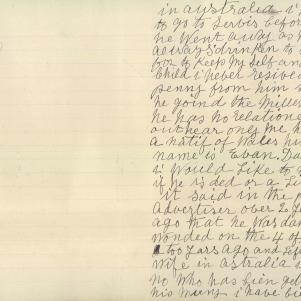 in australia i
to go to Servis befor
he Went away as h
always drinken to
for to Keep my self an
Child i never resived
penny from him s
he goind the Milles
he has no relatione
out hear only me
a natif of Wales his
name is Evan. Da
i Would Like to
if he is ded or a Li
it said in the
Advertiser ober 2 y
ago that he was dan
Wonded on the 4 of
too years ago and Left
Wife in astralia
no Who has bien get
his muny i have bi